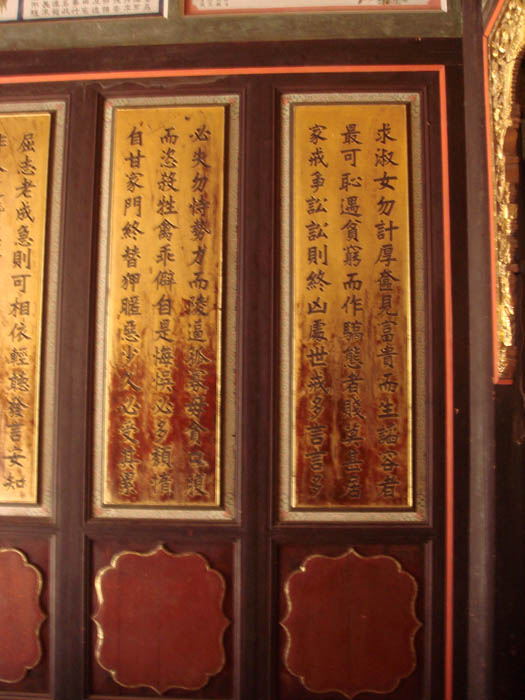 求淑女勿計厚奩見富貴而生諂容者
最可恥遇貧窮而作驕態者賤莫甚居
家戒爭訟訟則終凶處世戒多言言多
必失勿恃勢力而陵逼孤寡毋貪口腹
而恣殺牲禽乖僻自是悔悞必多頹惰
自甘家門終替狎暱惡少久必受其累
屈志老成急則可相依輕聽發言安知